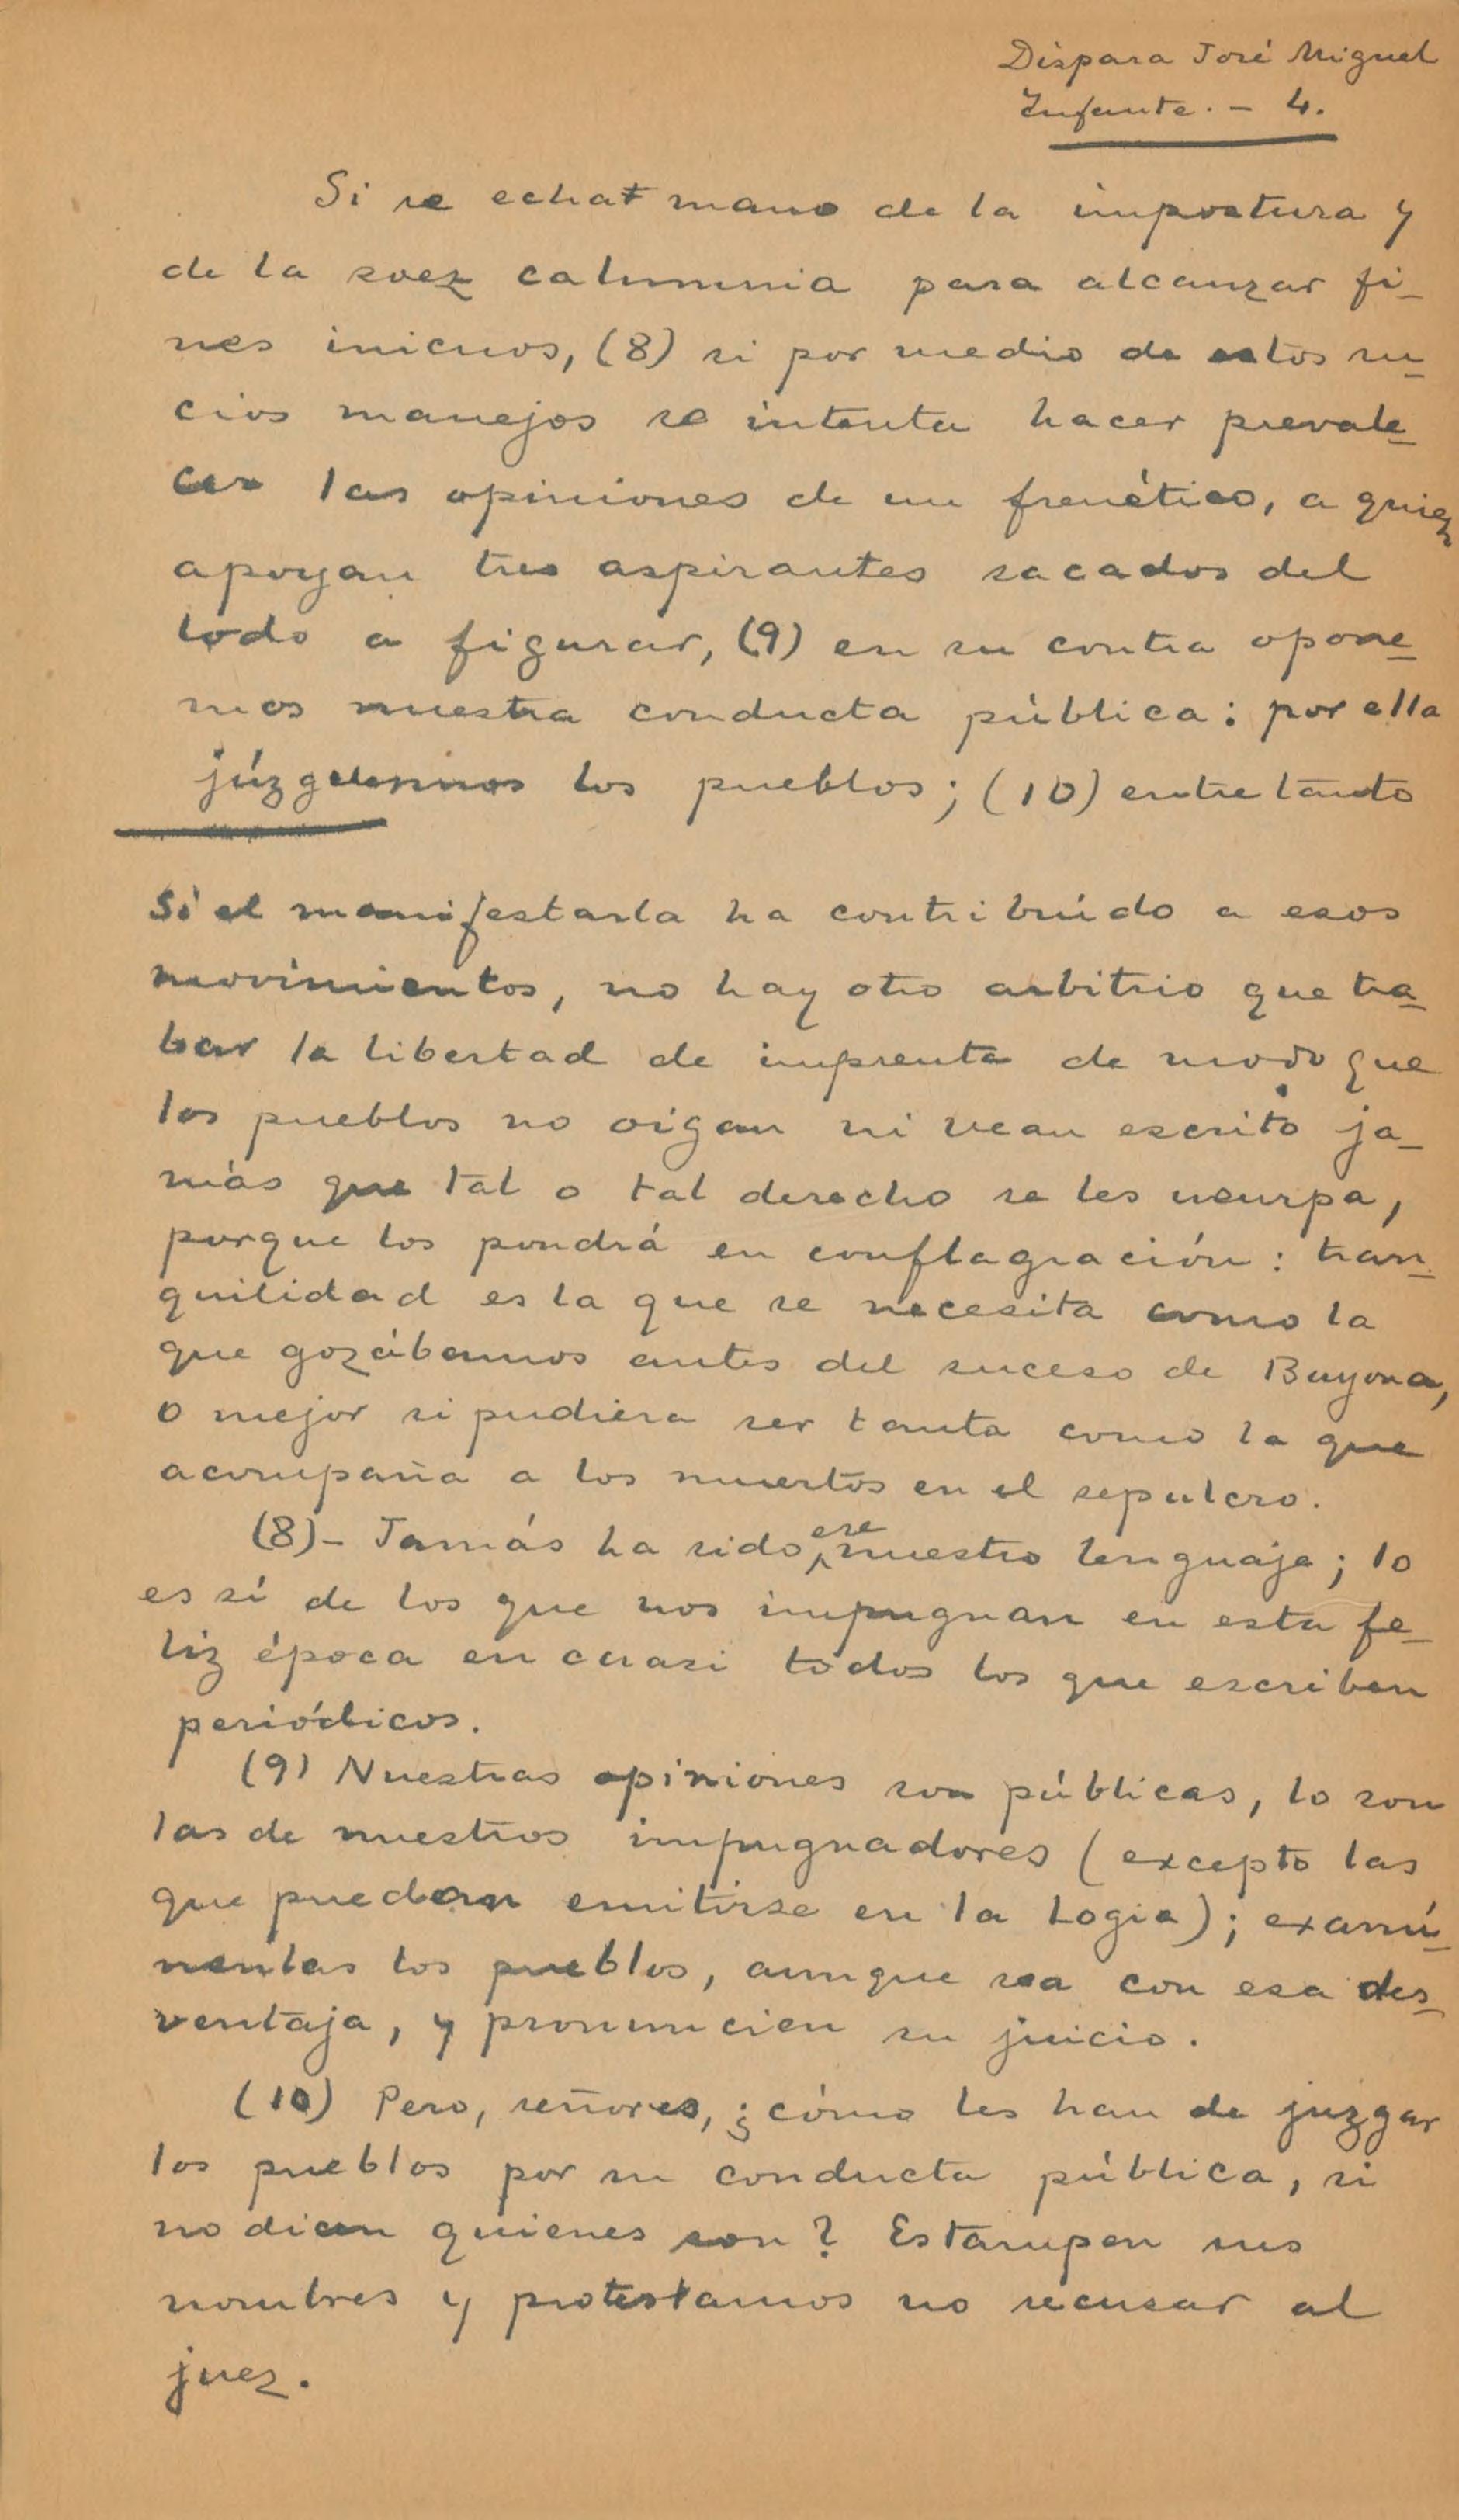 Dispara José Miguel
Infante. - 4.
Si se echa mano de la impostura y
de la soez calumnia para alcanzar fi-
nes inicuos, (8) si por medio de estos su-
cios manejos se intenta hacer prevale-
cer las opiniones de un frenético, a quien
apoyan tres aspirantes sacados del
lodo a figurar, (9) en su contra opone-
mos nuestra conducta pública: por ella
júzguennos los pueblos; (10) entre tanto
Si el manifestarla ha contribuído a esos
movimientos, no hay otro arbitrio que tra-
bar la libertad de imprenta de modo que
los pueblos no oigan ni vean escrito ja-
más que tal o tal derecho se les usurpa,
porque los pondrá en conflagración: tran-
quilidad es la que se necesita como la
que gozábamos antes del suceso de Bayona,
o mejor si pudiera ser tanta como la que
acompaña a los muertos en el sepulcro.
(8)- Jamás ha sido ese nuestro lenguaje; lo
es sí de los que nos impugnan en esta fe-
liz época en cuasi todos los que escriben
periódicos.
(9) Nuestras opiniones son públicas, lo son
las de nuestros impugnadores (excepto las
que puedan emitirse en la Logia); examí-
nenlas los pueblos, aunque sea con esa des-
ventaja, y pronuncien su juicio.
(10) Pero, señores, ¿cómo les han de juzgar
los pueblos por su conducta pública, si
no dicen quienes son? Estampen sus
nombres y protestamos no recusar al
juez.